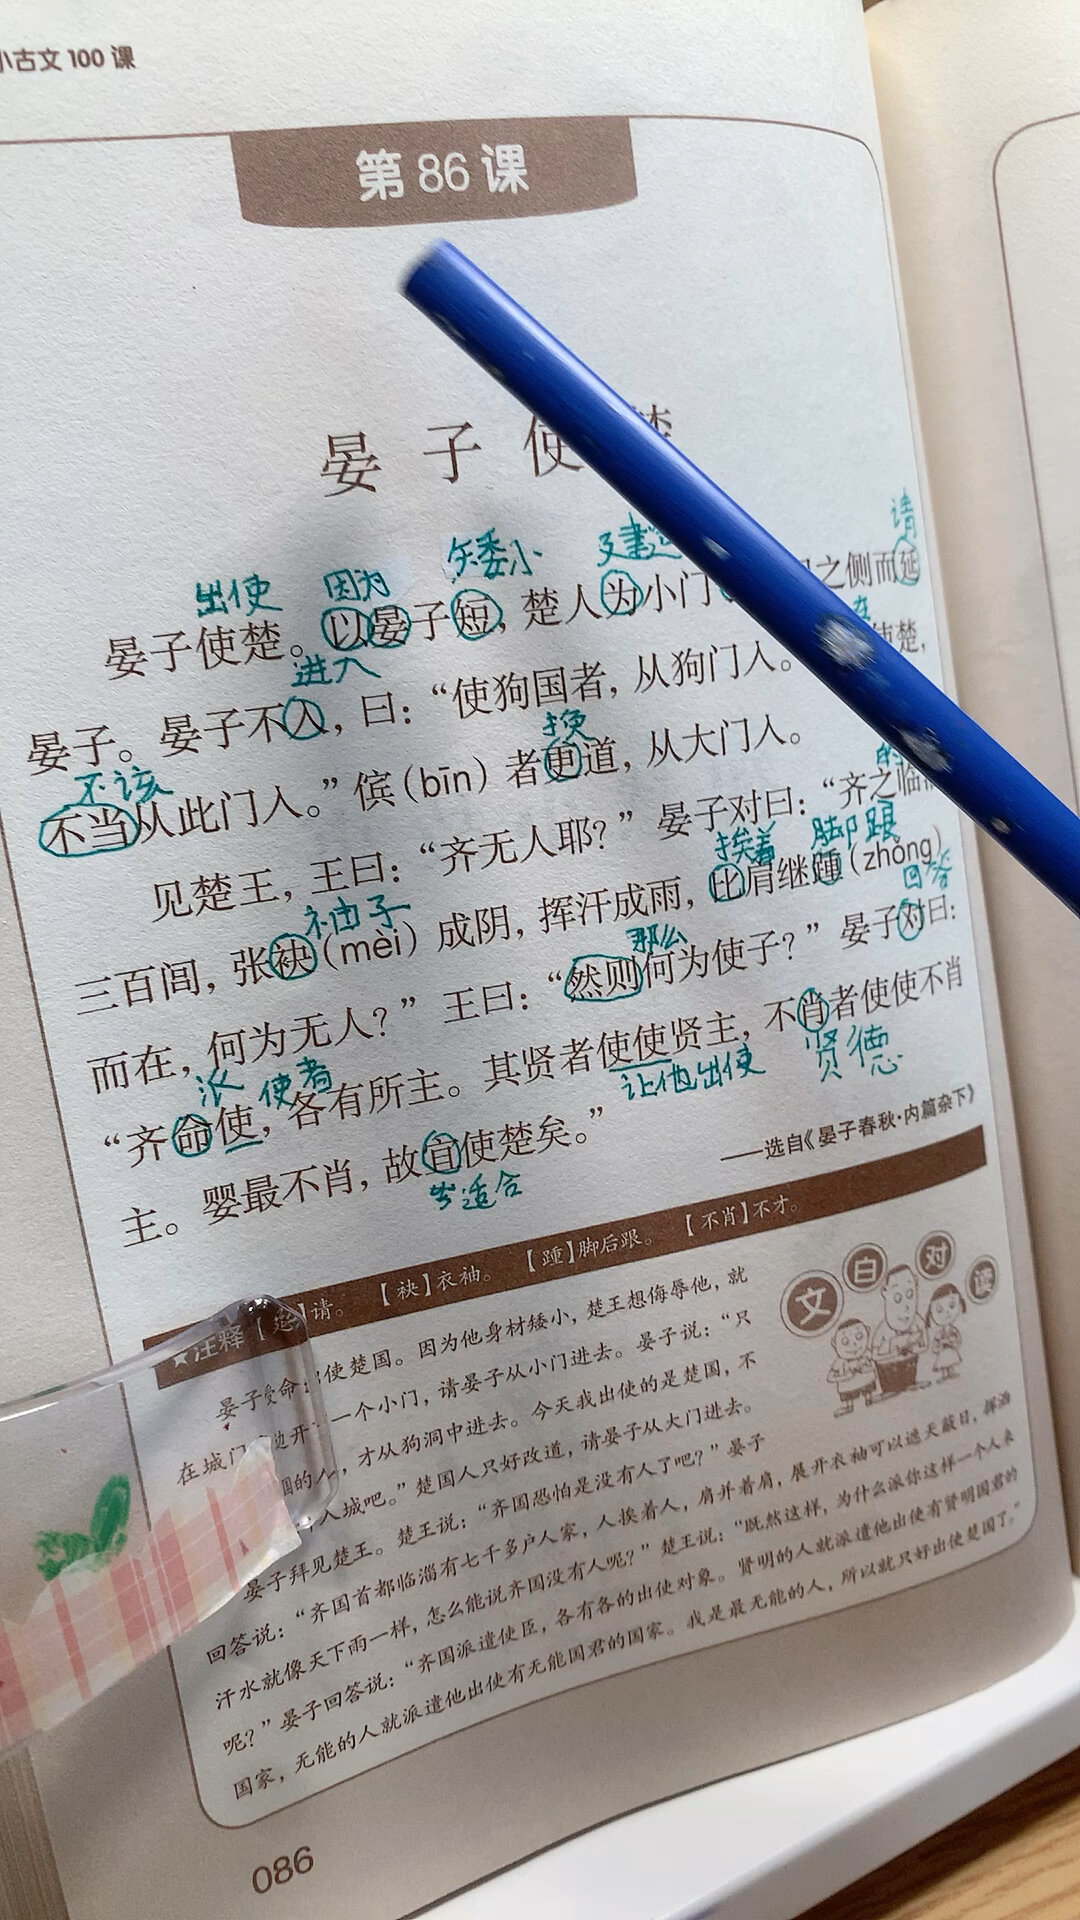 小古文 100 课
第 86 课
晏 子 使 楚
出使 因为 矮小 建造 请
晏子使楚。以晏子短，楚人为小门 之侧而延
进入 在
晏子。晏子不入，曰：“使狗国者，从狗门入。 使楚，
不该 换
不当从此门入。”傧（bīn）者更道，从大门入。
的
见楚王，王曰：“齐无人耶？”晏子对曰：“齐之临
袖子 挨着 脚跟
三百闾，张袂（mèi）成阴，挥汗成雨，比肩继踵（zhǒng）
那么 回答
而在，何为无人？”王曰：“然则何为使子？”晏子对曰：
派 使者
“齐命使，各有所主。其贤者使使贤主，不肖者使使不肖
让他出使 贤德
主。婴最不肖，故宜使楚矣。”
适合
——选自《晏子春秋·内篇杂下》
★注释 【延】请。 【袂】衣袖。 【踵】脚后跟。 【不肖】不才。
文白对读
晏子受命 使楚国。因为他身材矮小，楚王想侮辱他，就
在城门 边开 一个小门，请晏子从小门进去。晏子说：“只
国的人，才从狗洞中进去。今天我出使的是楚国，不
人城吧。”楚国人只好改道，请晏子从大门进去。
晏子拜见楚王。楚王说：“齐国恐怕是没有人了吧？”晏子
回答说：“齐国首都临淄有七千多户人家，人挨着人，肩并着肩，展开衣袖可以遮天蔽日，挥洒
汗水就像天下雨一样，怎么能说齐国没有人呢？”楚王说：“既然这样，为什么派你这样一个人来
呢？”晏子回答说：“齐国派遣使臣，各有各的出使对象。贤明的人就派遣他出使有贤明国君的
国家，无能的人就派遣他出使有无能国君的国家。我是最无能的人，所以就只好出使楚国了。”
086